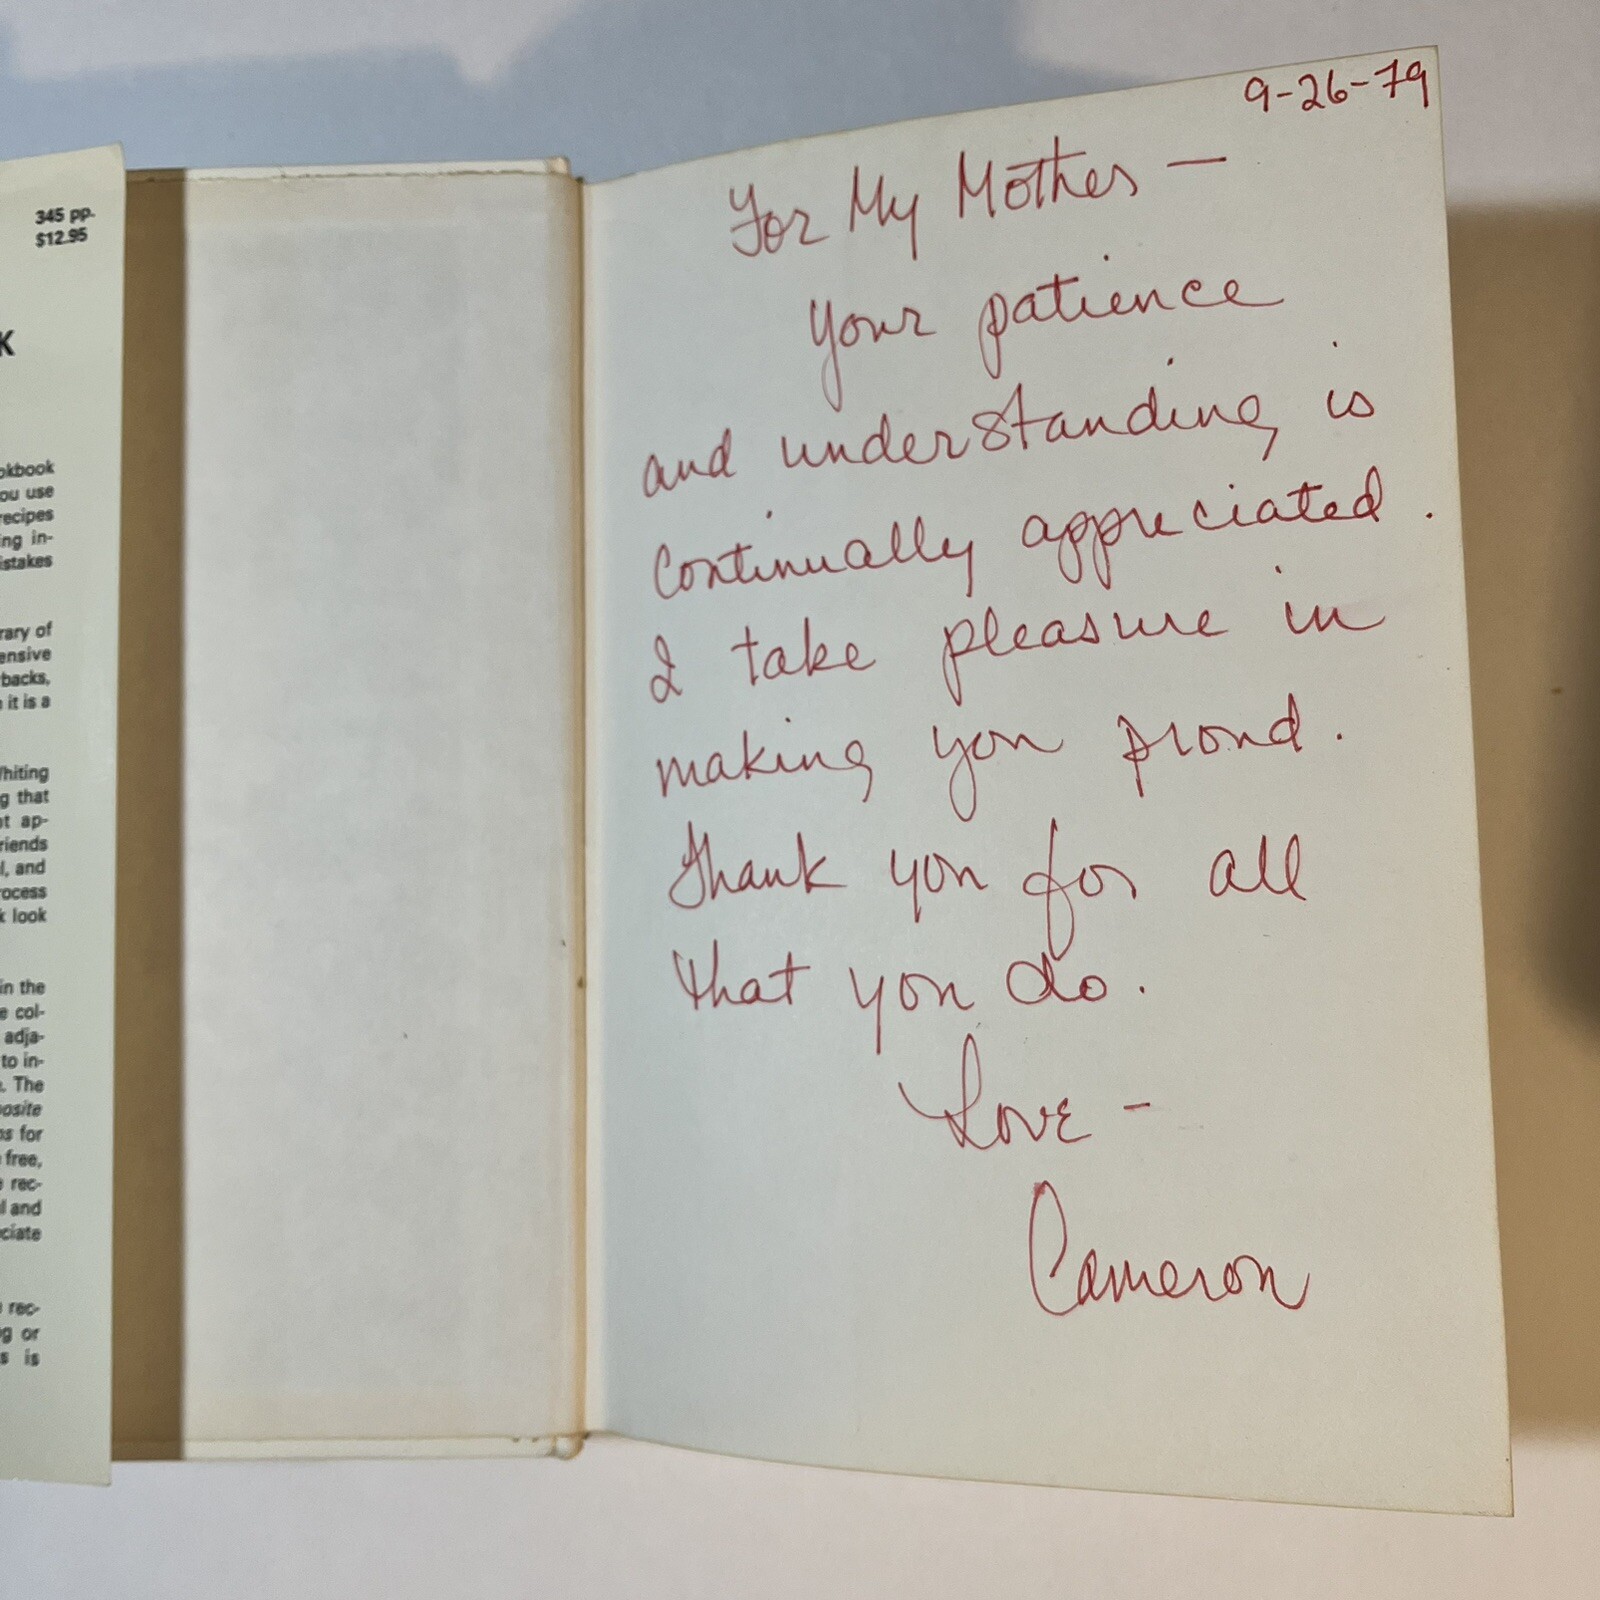 345 pp.
$12.95
K
okbook
ou use
recipes
ing in-
istakes
rary of
ensive
backs,
it is a
Whiting
g that
ot ap-
riends
l, and
rocess
k look
in the
e col-
adja-
to in-
. The
posite
ns for
free,
e rec-
l and
ciate
rec-
g or
s is
9-26-79
For My Mother —
Your patience
and understanding is
continually appreciated.
I take pleasure in
making you proud.
Thank you for all
that you do.
Love -
Cameron